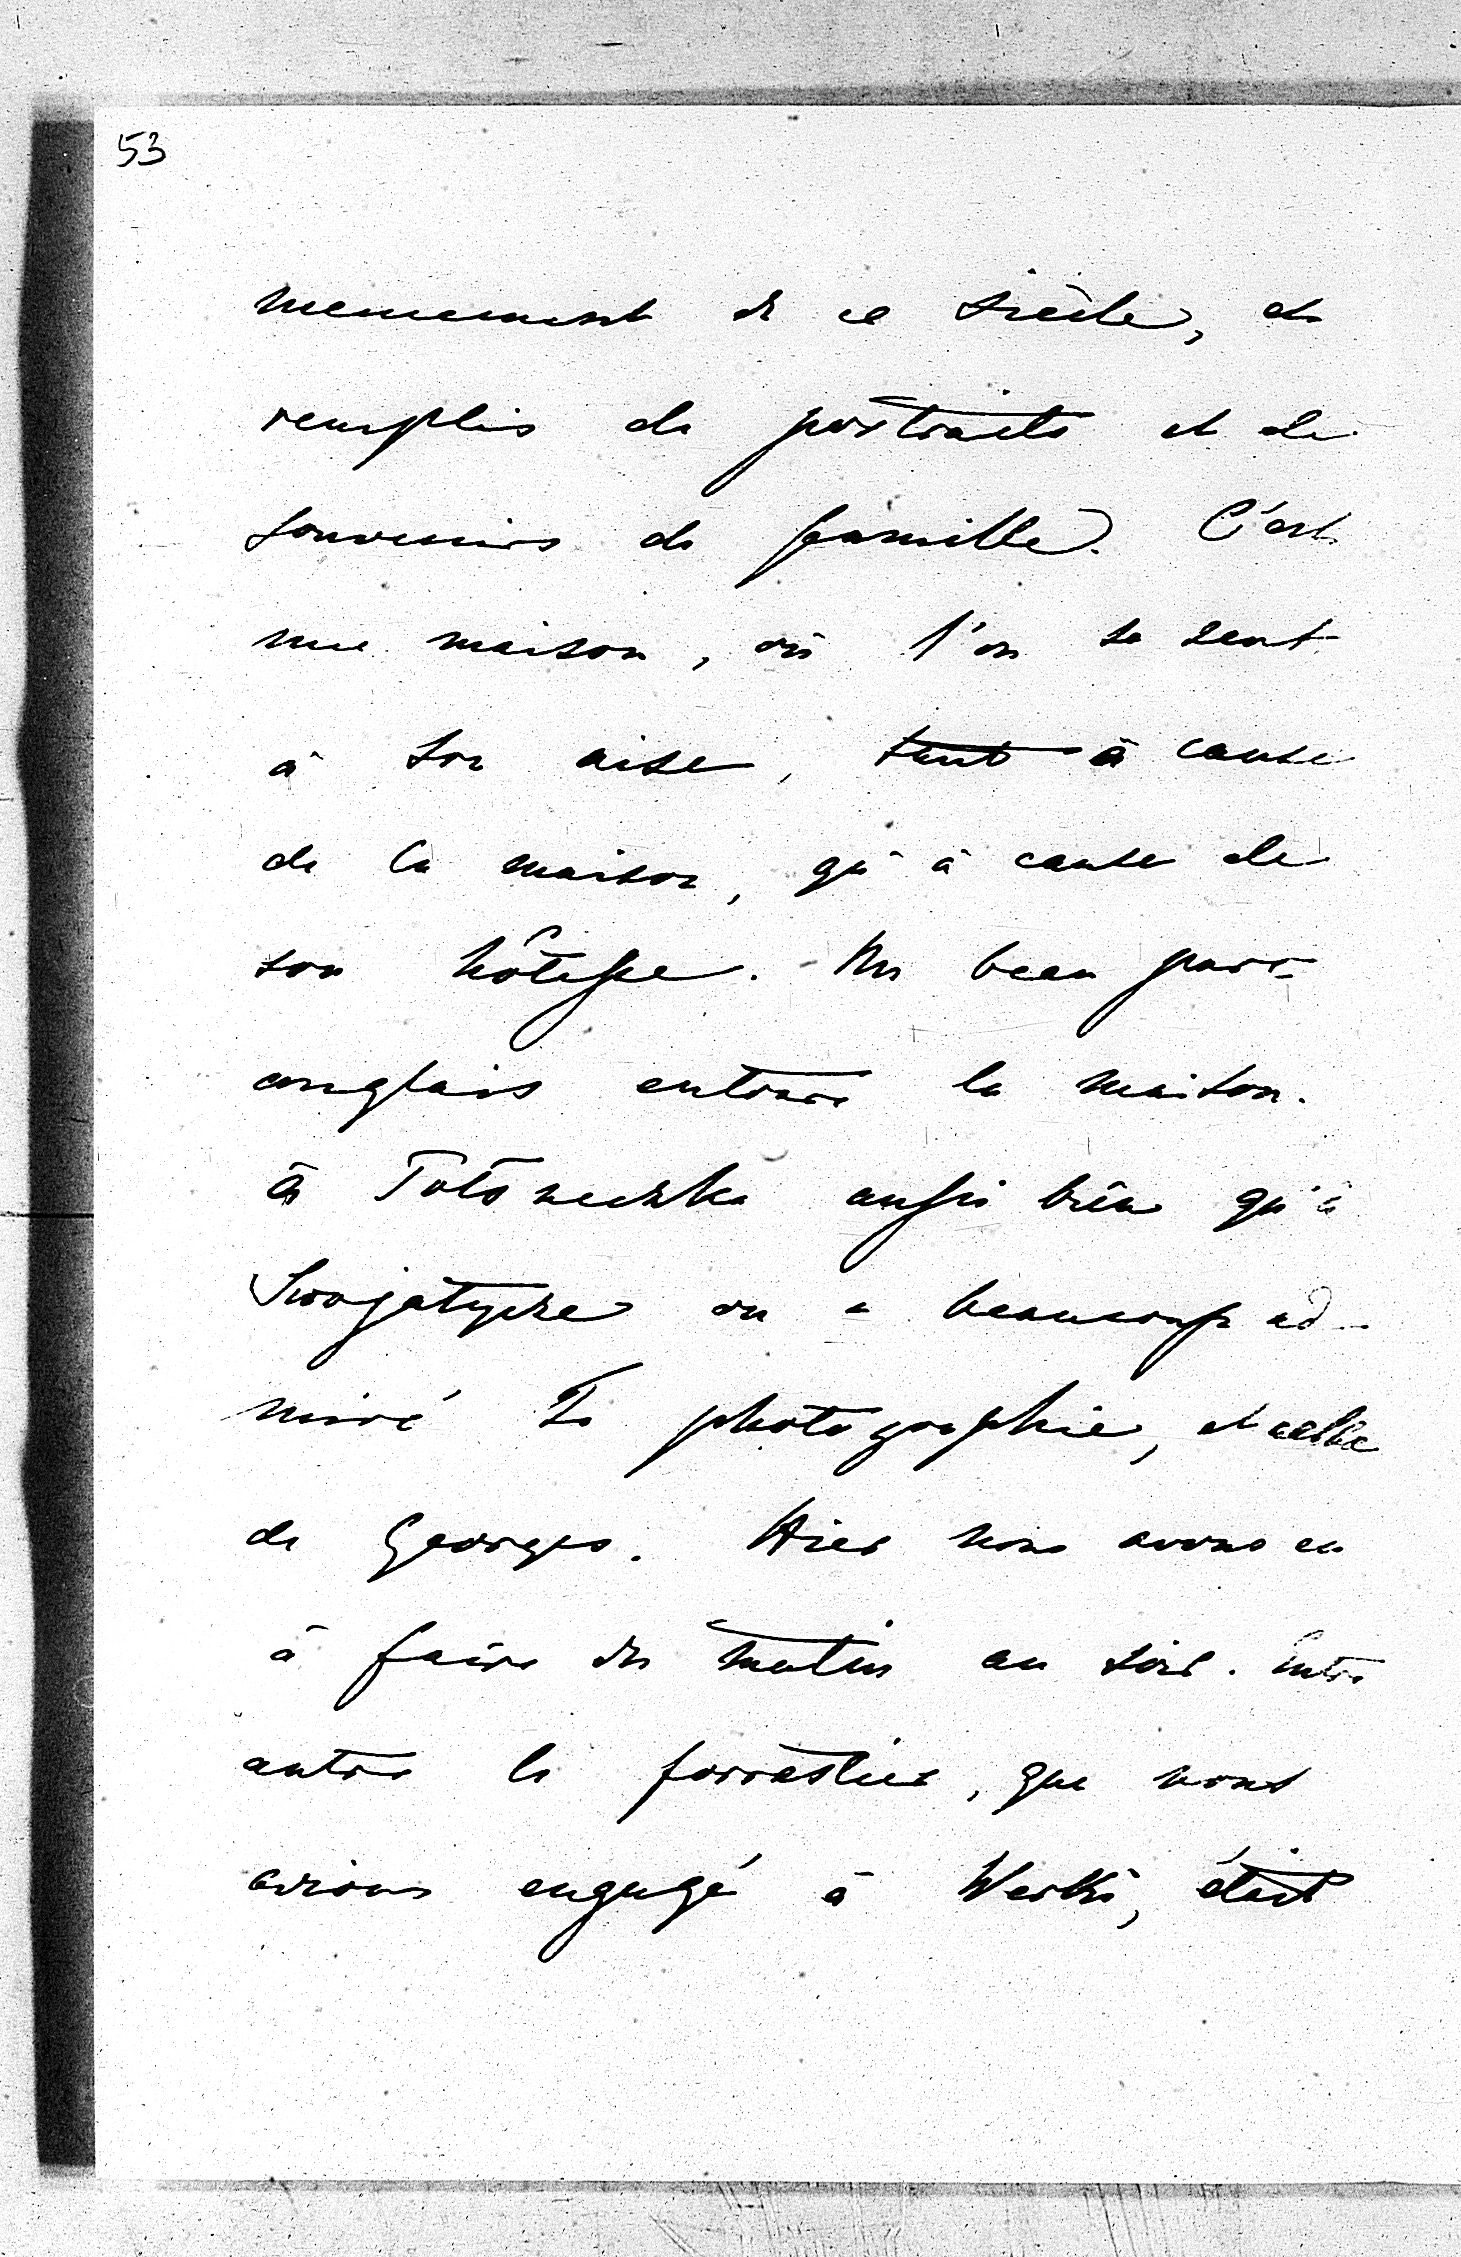 53
mencement de ce siècle, et
remplis de portraits et de
souvenirs de famille. C'est
une maison, où l'on se sent
à son aise, tant à cause
de la maison, qu'à cause de
son hôtesse. Un beau parc
anglais entoure la maison.
à Totoneschka aussi bien qu'à
Swojatycze on a beaucoup ad-
miré Ta photographie, et celle
de Georges. Hier nous avons eu
à faire du matin au soir. Entre
autre le forrestier, que nous
avions engagé à Werki, était